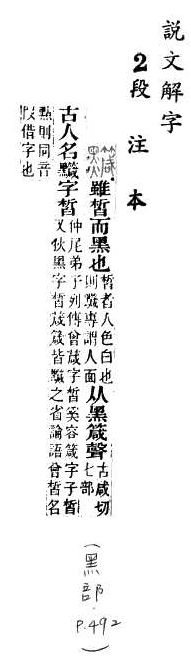 說文解字
2段注本
𪒹雖晳而黑也 晳者人色白也
則𪒹專謂人面 从黑箴聲 古咸切
七部
古人名𪒹字晳 仲尼弟子列傳曾蒧字晳奚容箴字子晳
又狄黑字晳蒧箴皆𪒹之省論語曾晳名
點則同音
叚借字也
(黑部.
P.492)